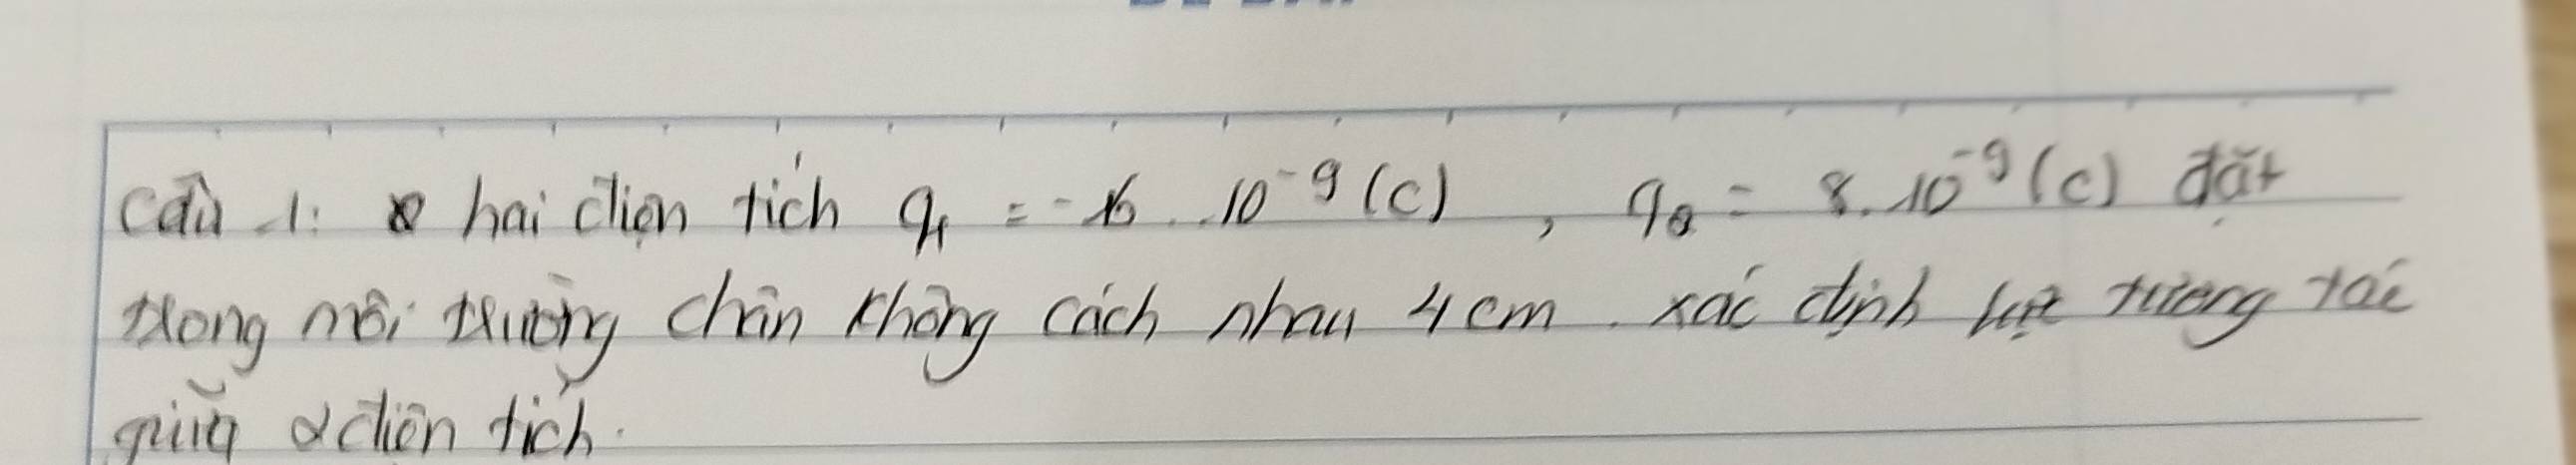 Câu 1: hai điện tích q1 = -6 . 10^-9 (C), q2 = 8.10^-9 (C) đặt
trong môi trường chân không cách nhau 4cm. xác định lực tương tác
giữa 2 điện tích.